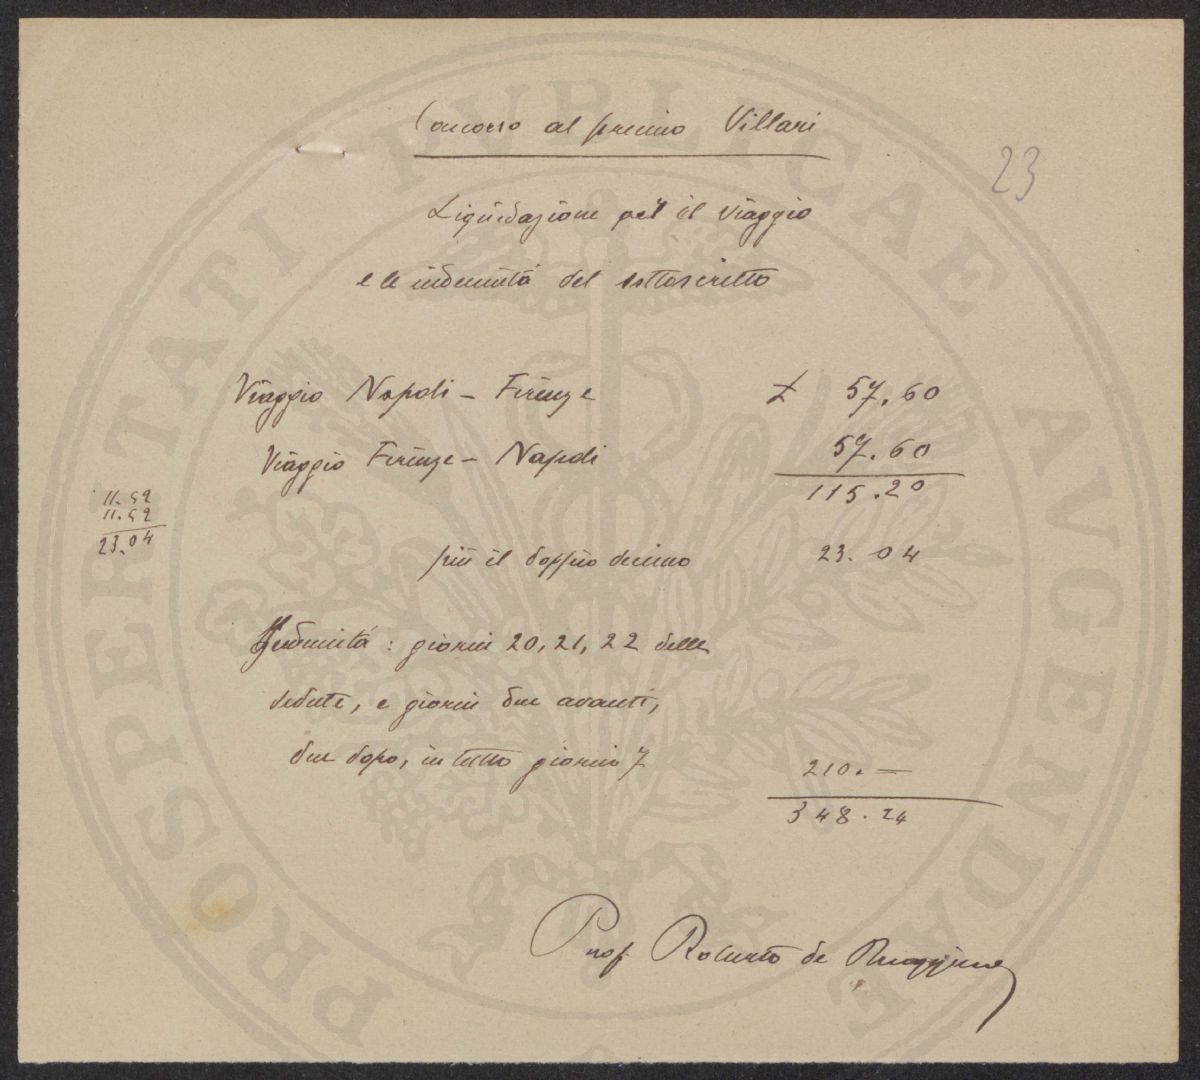 Concorso al premio Villari
23
Liquidazione pel il viaggio
e le indennità del sottoscritto
Viaggio Napoli - Firenze £ 57.60
Viaggio Firenze - Napoli 57.60
115.20
11.52
11.52
23.04
più il doppio decimo 23.04
Indennità: giorni 20, 21, 22 delle
sedute, e giorni due avanti,
due dopo, in tutto giorni 7 210.—
348.24
Prof. Roberto de Ruggiero
PROSPERTATI PVBLICAE AVGENDAE